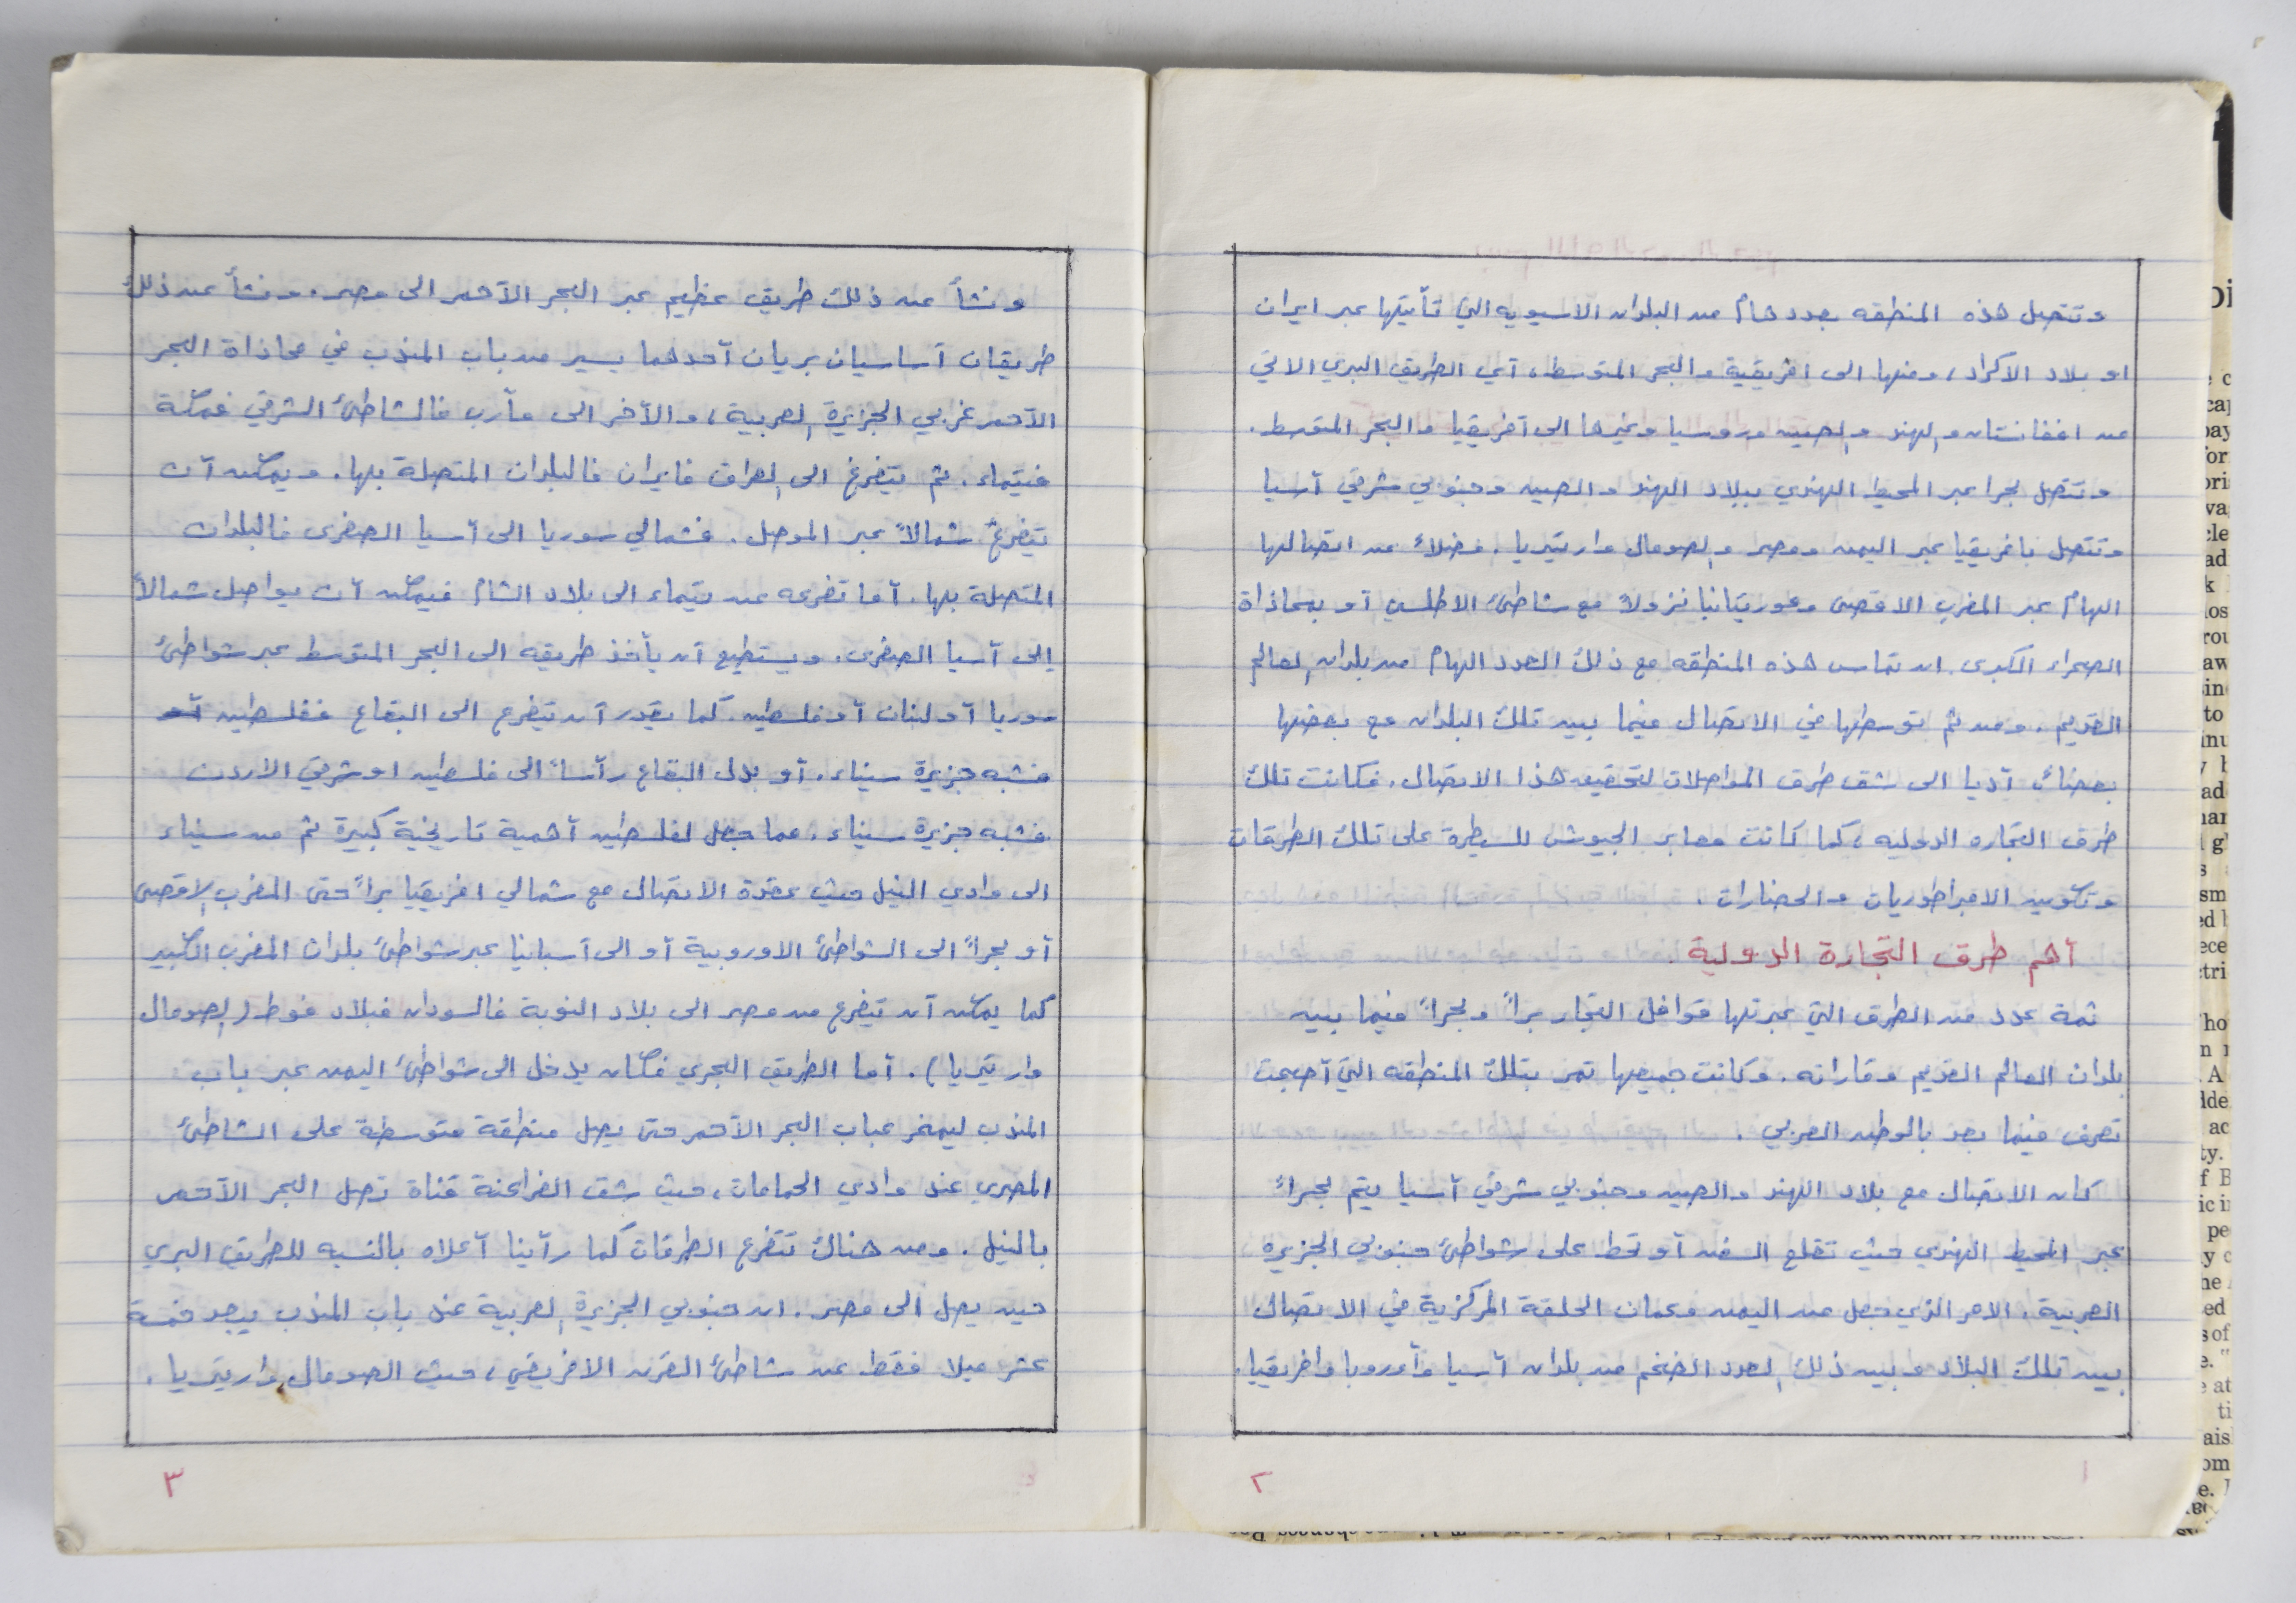 وتتصل هذه المنطقه بعدد هام من البلدان الاسيويه التي تأتيها عبر ايران
او بلاد الأكراد، ومنها الى افريقية والبحر المتوسط، أي الطريق البري الاتي
من افغانستان والهند والصين وروسيا وغيرها الى أفريقيا والبحر المتوسط.
وتتصل بحرا عبر المحيط الهندي ببلاد الهند والصين وجنوبي شرقي آسيا
وتتصل بافريقيا عبر اليمن ومصر والصومال وارتيريا. فضلاً عن اتصالها
الهام عبر المغرب الاقصى وموريتانيا نزولاً مع شاطئ الاطلسي أو بمحاذاة
الصحراء الكبرى. ان تماس هذه المنطقه مع ذلك العدد الهام من بلدان العالم
القديم. ومن ثم توسطها في الاتصال فيما بين تلك البلدان مع بعضها
بعضاً، أديا الى شق طرق المواصلات لتحقيق هذا الاتصال. فكانت تلك
طرق التجاره الدوليه، كما كانت معابر الجيوش للسيطرة على تلك الطرقات
وتكوين الامبراطوريات والحضارات.
أهم طرق التجارة الدولية.
ثمة عدد من الطرق التي عبرتها قوافل التجار براً وبحراً فيما بين
بلدان العالم القديم وقاراته. وكانت جميعها تمر بتلك المنطقه التي أصبحت
تعرف فيما بعد بالوطن العربي.
كان الاتصال مع بلاد الهند والصين وجنوبي شرقي آسيا يتم بحراً
عبر المحيط الهندي حيث تقلع السفن أو تحط على شواطئ جنوبي الجزيره
العربية. الامر الذي جعل من اليمن وعمان الحلقة المركزية في الاتصال
بين تلك البلاد وبين ذلك العدد الضخم من بلدان آسيا وأوروبا وافريقيا.
٢
ونشأ عن ذلك طريق عظيم عبر البحر الأحمر الى مصر. ونشأ عن ذلك
طريقان أساسيان بريان أحدهما يسير من باب المندب في محاذاة البحر
الأحمر غربي الجزيرة العربية، والآخر الى مأرب فالشاطئ الشرقي فمكة
فتيماء. ثم يتفرع الى العراق فايران فالبلدان المتصلة بها. ويمكن أن
يتفرع شمالاً عبر الموصل. فشمالي سوريا الى آسيا الصغرى فالبلدان
المتصلة بها. أما تفرعه من تيماء الى بلاد الشام فيمكن أن يواصل شمالاً
إلى آسيا الصغرى. ويستطيع أن يأخذ طريقه الى البحر المتوسط عبر شواطئ
سوريا أو لبنان أو فلسطين. كما يقدر أن يتفرع الى البقاع ففلسطين أو
فشبه جزيرة سيناء. أو بدل البقاع رأساً الى فلسطين او شرقي الاردن
فشبه جزيرة سيناء. مما جعل لفلسطين أهمية تاريخية كبيرة ثم من سيناء
الى وادي النيل حيث عقدة الاتصال مع شمالي افريقيا براً حتى المغرب الاقصى
أو بحراً الى الشواطئ الاوروبية أو الى أسبانيا عبر شواطئ بلدان المغرب الكبير
كما يمكن أن يتفرع من مصر الى بلاد النوبة فالسودان فبلاد فوط (الصومال
وارتيريا). أما الطريق البحري فكان يدخل الى شواطئ اليمن عبر باب
المندب ليمخر عباب البحر الأحمر حتى يصل منطقة متوسطة على الشاطئ
المصري عند وادي الحمامات، حيث شق الفراعنة قناة تصل البحر الأحمر
بالنيل. ومن هناك تتفرع الطرقات كما رأينا أعلاه بالنسبه للطريق البري
حين يصل الى مصر. ان جنوبي الجزيرة العربية عند باب المندب يبعد خمسة
عشر ميلا فقط عن شاطئ القرن الافريقي، حيث الصومال وارتيريا.
٣